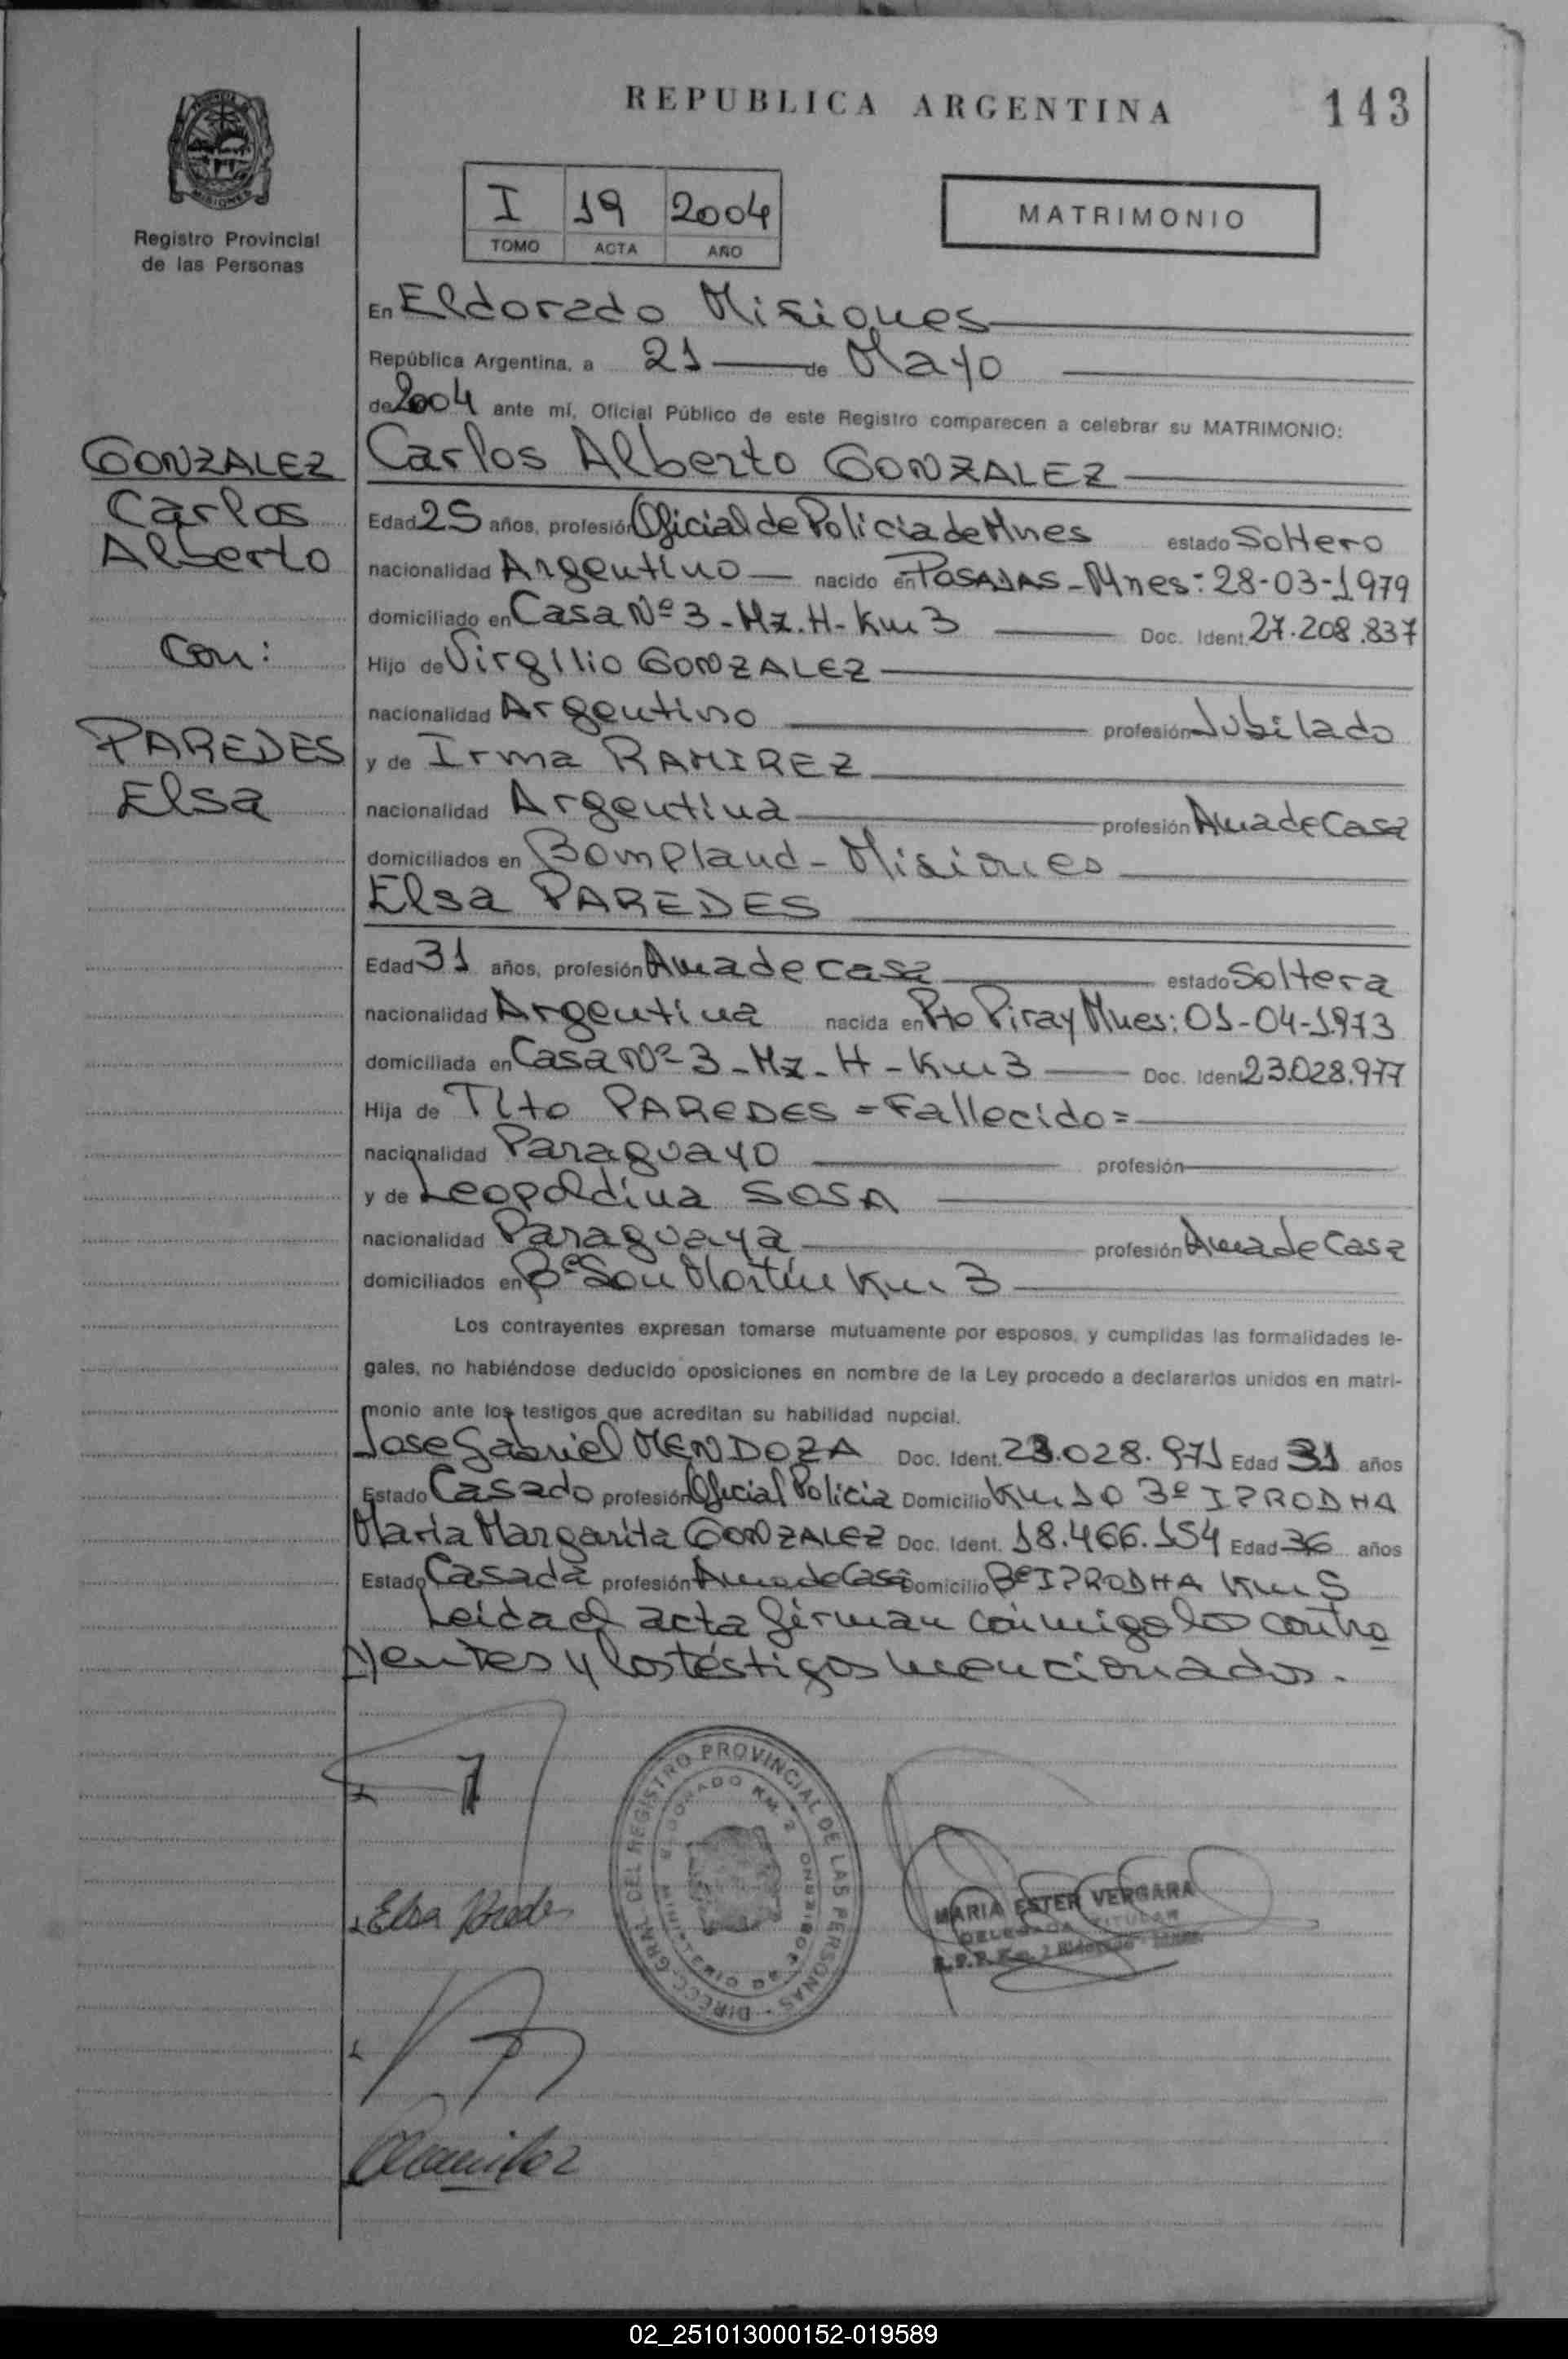 REPUBLICA ARGENTINA
143
PROVINCIA DE MISIONES
Registro Provincial
de las Personas
I 19 2004
TOMO ACTA AÑO
MATRIMONIO
GONZALEZ
Carlos
Alberto
Con:
PAREDES
Elsa
En Eldorado Misiones
República Argentina, a 21 de Mayo
de 2004 ante mí, Oficial Público de este Registro comparecen a celebrar su MATRIMONIO:
Carlos Alberto GONZALEZ
Edad 25 años, profesión Oficial de Policia de Mnes estado Soltero
nacionalidad Argentino nacido en POSADAS - Mnes: 28-03-1979
domiciliado en Casa Nº 3 - Mz. H - Km 3 Doc. Ident. 27.208.837
Hijo de Virgilio GONZALEZ
nacionalidad Argentino profesión Jubilado
y de Irma RAMIREZ
nacionalidad Argentina profesión Ama de Casa
domiciliados en Bompland - Misiones
Elsa PAREDES
Edad 31 años, profesión Ama de casa estado Soltera
nacionalidad Argentina nacida en Pto Piray Mnes: 01-04-1973
domiciliada en Casa Nº 3 - Mz - H - Km 3 Doc. Ident. 23.028.977
Hija de Tito PAREDES = Fallecido =
nacionalidad Paraguayo profesión
y de Leopoldina SOSA
nacionalidad Paraguaya profesión Ama de Casa
domiciliados en Bº San Martín Km 3
Los contrayentes expresan tomarse mutuamente por esposos, y cumplidas las formalidades le-
gales, no habiéndose deducido oposiciones en nombre de la Ley procedo a declararlos unidos en matri-
monio ante los testigos que acreditan su habilidad nupcial.
Jose Gabriel MENDOZA Doc. Ident. 23.028.971 Edad 31 años
Estado Casado profesión Oficial Policia Domicilio Km 10 Bº IPRODHA
Maria Margarita GONZALEZ Doc. Ident. 18.466.154 Edad 36 años
Estado Casada profesión Ama de Casa Domicilio Bº IPRODHA Km 5
Leida el acta firman conmigo los contra
yentes y los testigos mencionados.
DIRECC. GRAL. DEL REGISTRO PROVINCIAL DE LAS PERSONAS
ELDORADO KM. 2
Elsa Paredes
MARIA ESTER VERGARA
DELEGADA TITULAR
R.P.P. Km. 2 Eldorado - Mnes.
02_251013000152-019589